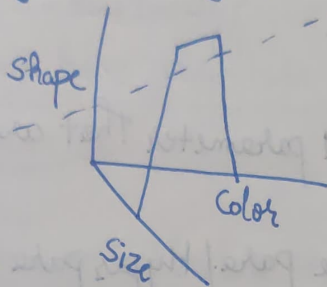 Shape
Color
Size